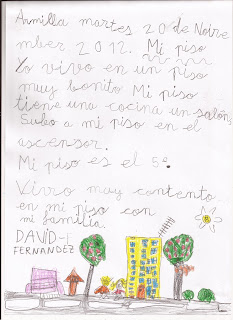 Armilla martes 20 de Novie
mber 2012. Mi piso
Yo vivo en un piso
muy bonito Mi piso
tiene una cocina un salón,
Subo a mi piso en el
ascensor.
Mi piso es el 5º.
Vivro muy contento
en mi piso con
mi familia.
DAVID-F
FERNANDEZ